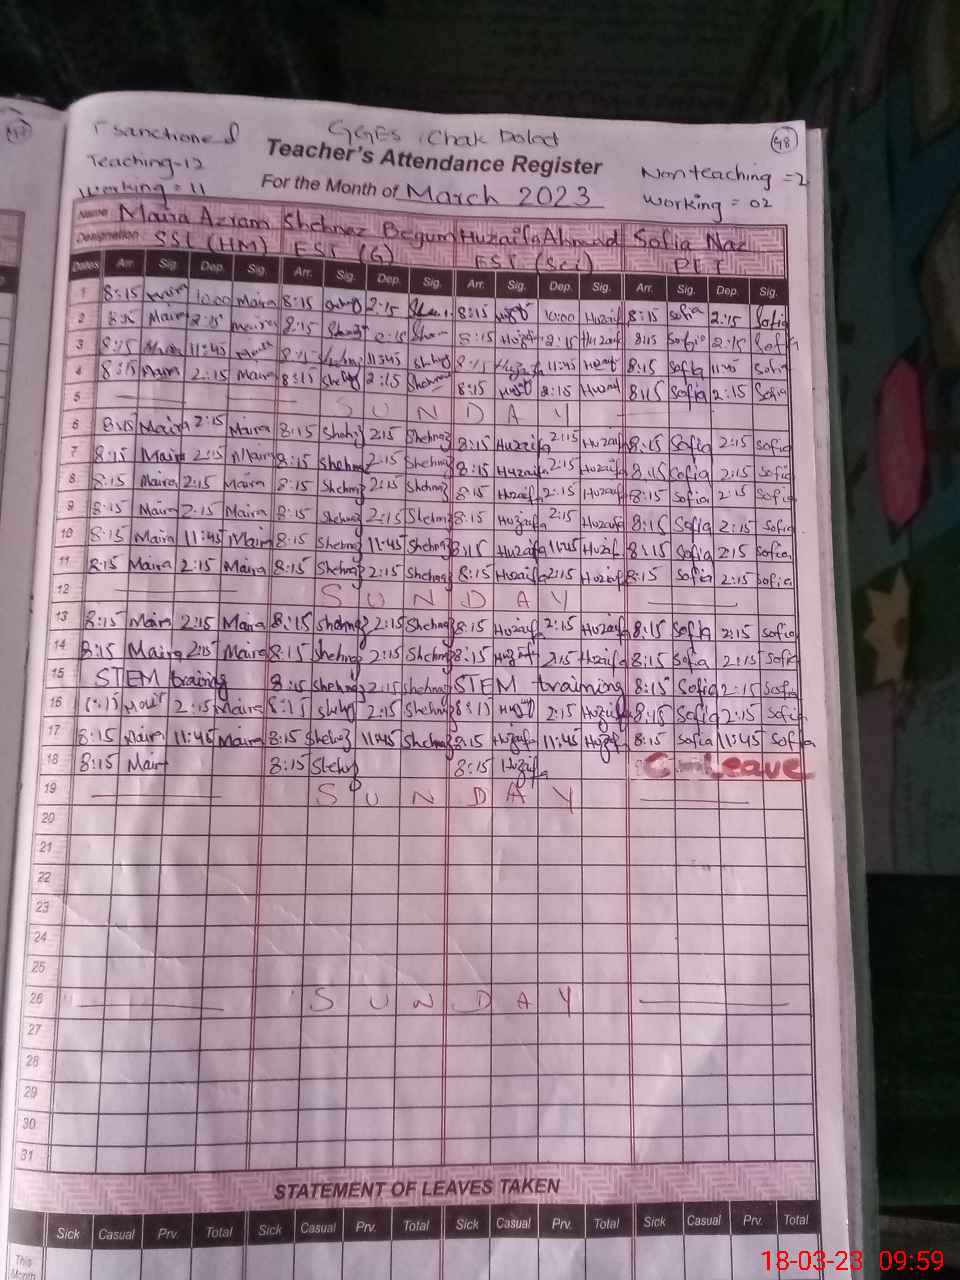 48
Sanctioned
GGES Chak Dolat
Teaching-12
Teacher's Attendance Register
Nonteaching = 2
Working = 11
For the Month of March 2023
Working = 02
Name Maira Azram Shehnaz Begum Huzaifa Ahmad Sofia Naz
Designation SST (HM) EST (G) EST (Sci) PET
Dates Arr. Sig. Dep. Sig. Arr. Sig. Dep. Sig. Arr. Sig. Dep. Sig. Arr. Sig. Dep. Sig.
1 8:15 10:00 Maira 8:15 2:15 8:15 10:00 Huzaif 8:15 Sofia 2:15 Sofia
2 8:15 Maira 2:15 Maira 8:15 2:15 8:15 2:15 Huzaf 8:15 Sofia 2:15 Sofia
3 8:15 Maira 11:45 8:15 11:45 8:15 11:45 8:15 Sofia 11:45 Sofia
4 8:15 Maira 2:15 Maira 8:15 2:15 8:15 2:15 8:15 Sofia 2:15 Sofia
5 SUNDAY
6 8:15 Maira 2:15 Maira 8:15 2:15 Shehnaz 8:15 Huzaifa 2:15 Huzaif 8:15 Sofia 2:15 Sofia
7 8:15 Maira 2:15 Maira 8:15 Shehnaz 2:15 Shehnaz 8:15 Huzaifa 2:15 Huzaifa 8:15 Sofia 2:15 Sofia
8 8:15 Maira 2:15 Maira 8:15 Shehnaz 2:15 Shehnaz 8:15 Huzaifa 2:15 Huzaifa 8:15 Sofia 2:15 Sofia
9 8:15 Maira 2:15 Maira 8:15 Shehnaz 2:15 Shehnaz 8:15 Huzaifa 2:15 Huzaifa 8:15 Sofia 2:15 Sofia
10 8:15 Maira 11:45 Maira 8:15 Shehnaz 11:45 Shehnaz 8:15 Huzaifa 11:45 Huzaif 8:15 Sofia 2:15 Sofia
11 8:15 Maira 2:15 Maira 8:15 Shehnaz 2:15 Shehnaz 8:15 Huzaifa 2:15 Huzaif 8:15 Sofia 2:15 Sofia
12 SUNDAY
13 8:15 Maira 2:15 Maira 8:15 Shehnaz 2:15 Shehnaz 8:15 Huzaifa 2:15 Huzaifa 8:15 Sofia 2:15 Sofia
14 8:15 Maira 2:15 Maira 8:15 Shehnaz 2:15 Shehnaz 8:15 2:15 Huzaifa 8:15 Sofia 2:15 Sofia
15 STEM training 8:15 Shehnaz 2:15 Shehnaz STEM training 8:15 Sofia 2:15 Sofia
16 8:15 2:15 Maira 8:15 2:15 Shehnaz 8:15 2:15 Huzaifa 8:15 Sofia 2:15 Sofia
17 8:15 Maira 11:45 Maira 8:15 11:45 Shehnaz 8:15 Huzaifa 11:45 8:15 Sofia 11:45 Sofia
18 8:15 Maira 8:15 8:15 Huzaifa C. Leave
19 SUNDAY
20
21
22
23
24
25
26 SUNDAY
27
28
29
30
31
STATEMENT OF LEAVES TAKEN
Sick Casual Prv. Total Sick Casual Prv. Total Sick Casual Prv. Total Sick Casual Prv. Total
This Month
18-03-23 09:59